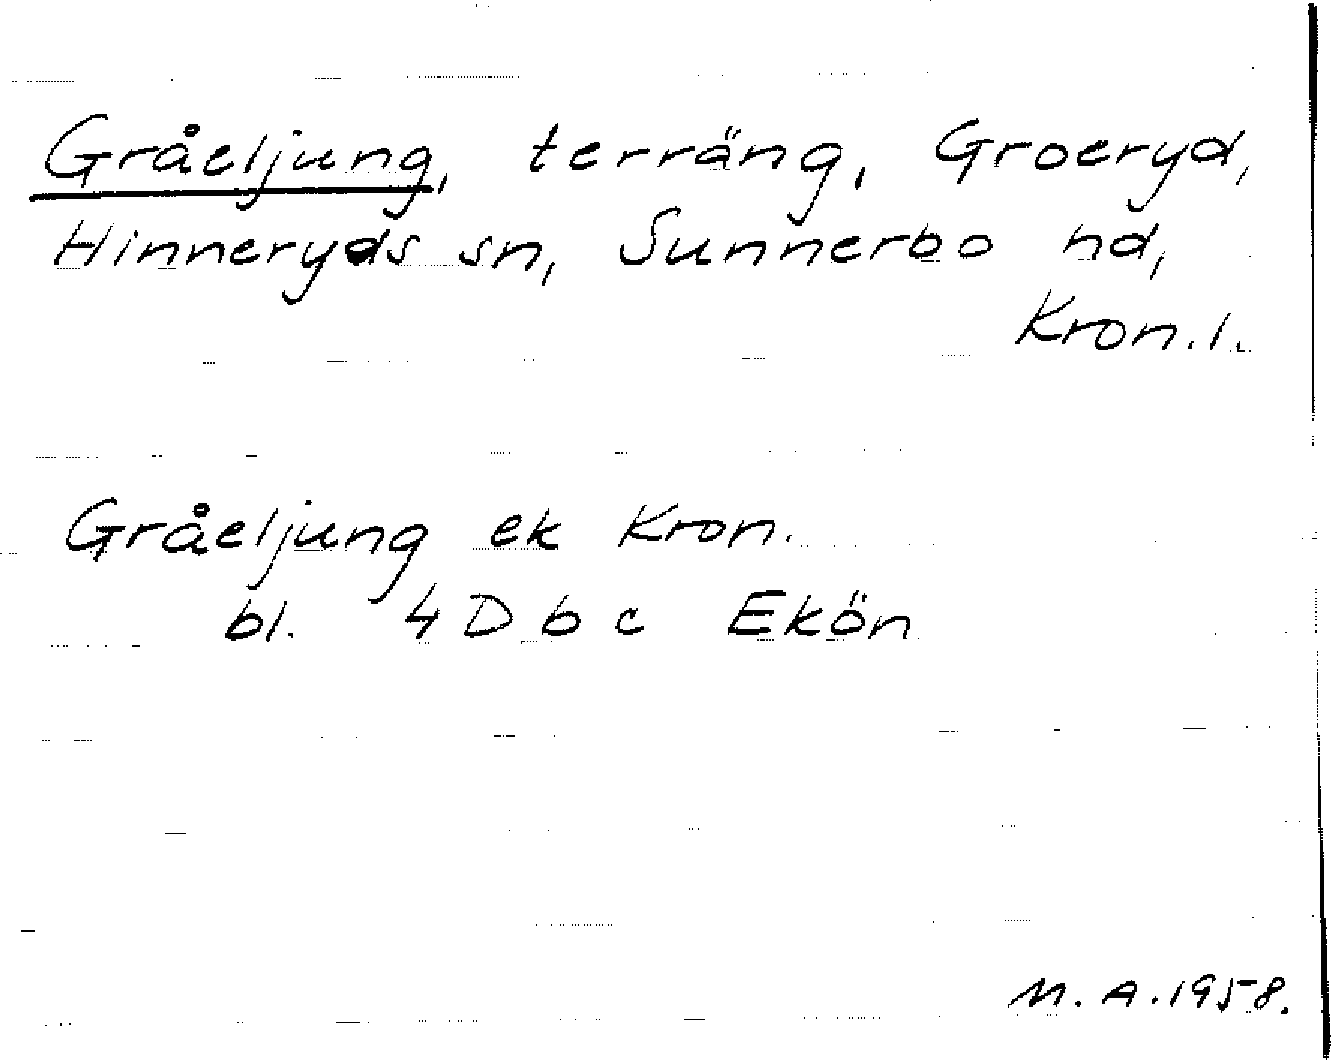 Gråeljung, terräng, Groeryd,
Hinneryds sn, Sunnerbo hd,
Kron.l.
Gråeljung ek Kron.
bl. 4 D b c Ekön
M.A.1958.